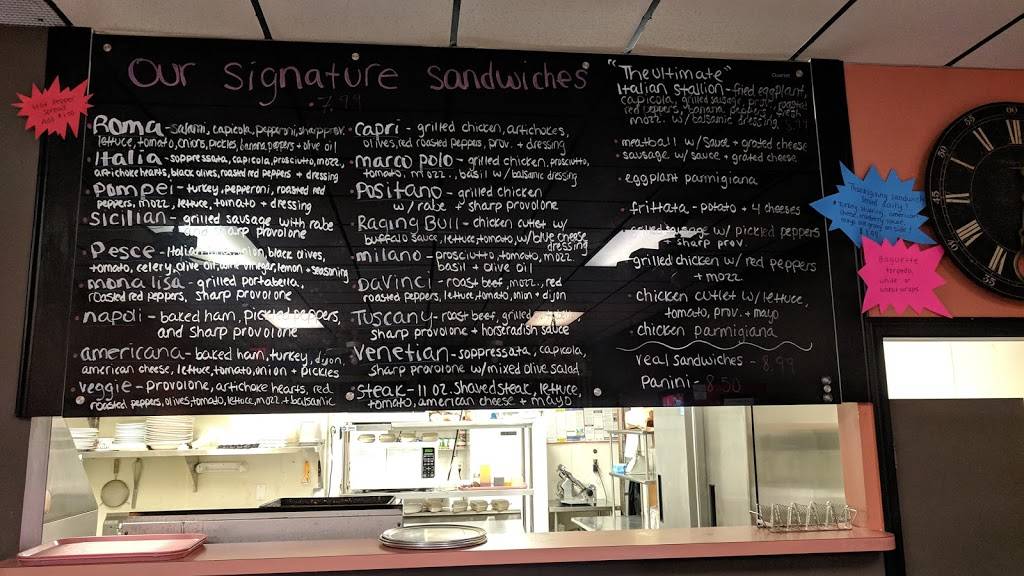 our signature sandwiches
• 7.99
Hot pepper
spread
Add $1.00
Roma - salami, capicola, pepperoni, sharp prov.
lettuce, tomato, onions, pickles, banana peppers + olive oil
Italia - soppressata, capicola, prosciutto, mozz.,
artichoke hearts, black olives, roasted red peppers + dressing
Pompei - turkey, pepperoni, roasted red
peppers, mozz., lettuce, tomato + dressing
Sicilian - grilled sausage with rabe
sharp provolone
Pesce - Italian tuna, onion, black olives,
tomato, celery, olive oil, wine vinegar, lemon + seasoning
mona lisa - grilled portabella,
roasted red peppers, sharp provolone
napoli - baked ham, pickled peppers,
and sharp provolone
americana - baked ham, turkey, dijon,
american cheese, lettuce, tomato, onion + pickles
veggie - provolone, artichoke hearts, red
roasted peppers, olives, tomato, lettuce, mozz. + balsamic
capri - grilled chicken, artichokes,
olives, red roasted peppers, prov. + dressing
marco polo - grilled chicken, prosciutto,
tomato, mozz., basil w/ balsamic dressing
Positano - grilled chicken
w/ rabe + sharp provolone
Raging Bull - chicken cutlet w/
buffalo sauce, lettuce, tomato, w/ blue cheese
dressing
milano - prosciutto, tomato, mozz.
basil + olive oil
DaVinci - roast beef, mozz., red
roasted peppers, lettuce, tomato, onion + dijon
Tuscany - roast beef, grilled
sharp provolone + horseradish sauce
venetian - soppressata, capicola,
sharp provolone w/ mixed olive salad
steak - 11 oz. shaved steak, lettuce,
tomato, american cheese + mayo
"The ultimate"
Italian Stallion - fried eggplant,
capicola, grilled sausage, prov., roasted
red peppers, fresh
mozz. w/ balsamic dressing
• meatball w/ sauce + grated cheese
• sausage w/ sauce + grated cheese
• eggplant parmigiana
• frittata - potato + 4 cheeses
• grilled sausage w/ pickled peppers
+ sharp prov.
• grilled chicken w/ red peppers
+ mozz.
• chicken cutlet w/ lettuce,
tomato, prov. + mayo
• chicken parmigiana
veal sandwiches - 8.99
Panini - 8.50
Thanksgiving sandwich
Baguette
torpedo,
white or
wheat wraps